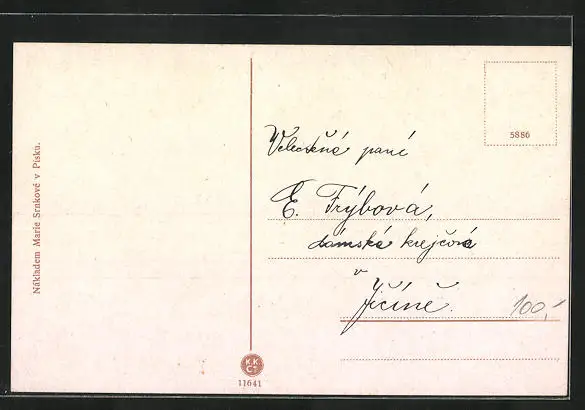 Nákladem Marie Srnkové v Písku.
5886
Velectěná paní
E. Frýbová,
dámská krejčová
v
Jičíně.
100,-
K.K.
11641